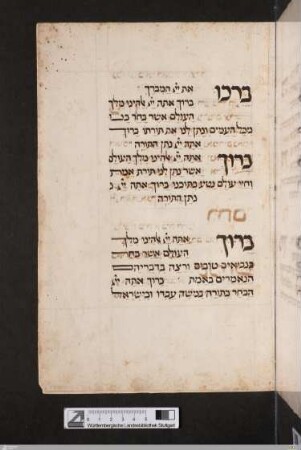 ברכו את ייי המבורך
ברוך אתה ייי אלהינו מלך
העולם אשר בחר בנו
מכל העמים ונתן לנו את תורתו ברוך
אתה ייי נתן התורה
ברוך אתה ייי אלהינו מלך העולם
אשר נתן לנו תורת אמת
וחיי עולם נטע בתוכנו ברוך אתה ייי
נתן התורה
ברוך אתה ייי אלהינו מלך
העולם אשר בחר
בנביאים טובים ורצה בדבריהם
הנאמרים באמת ברוך אתה ייי
הבחר בתורה במשה עבדו ובישראל
Württembergische Landesbibliothek Stuttgart